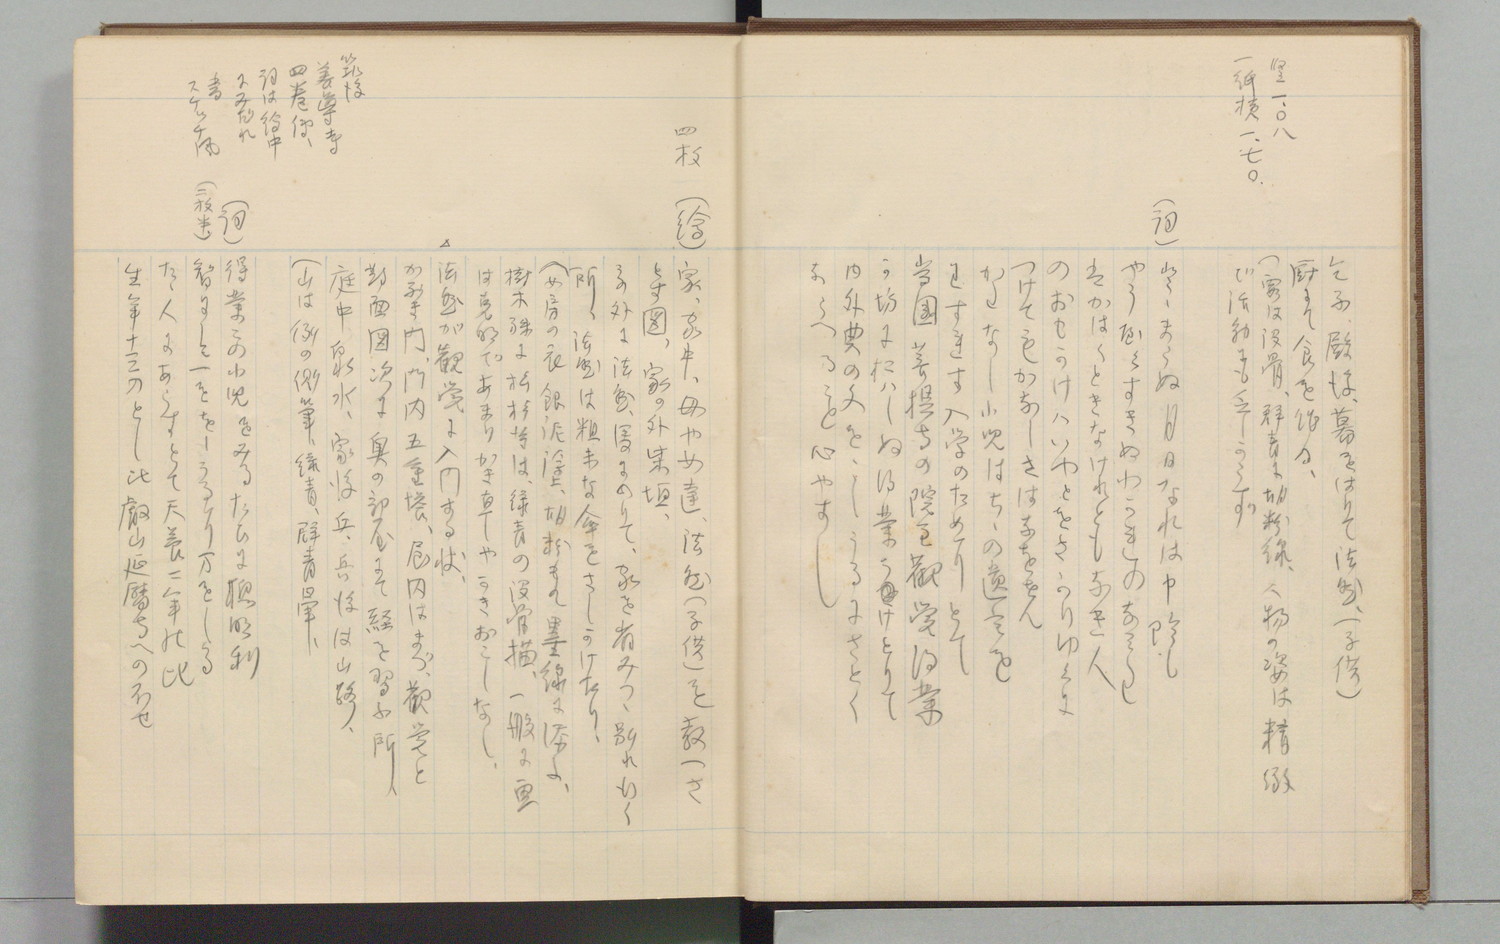 竪一、〇八
一紙横一、七〇、
乞子、殿様、幕をはりて法然(子供)
厨にて食を作る、
(家は没骨、群青に胡粉線、人物の姿は精緻
で活動
(詞)
とまらぬ月日なれは中陰も
やう
はかはくときなけれともなき人
のおもかけハいやとをさかりゆくに
つけてもかなしきは
かたなし小児はちゝの遺言を
わすれす入学のためとて
当国菩提寺の院主観覚得業
の坊にたハしぬ得業うけとりて
内外典の文をしうるにさとく
をしへること心やすし
四枚
(絵)
家、家中、母や女達、法然(子供)を教へさ
とす図、家の外柴垣、
その外に法然、馬にのりて、家を省みつゝ別れ行く
所、法然は粗末な傘をさしかけたり、
(女房の衣銀泥塗、胡粉にて墨線に添ふ、
樹木殊に松杉等は、緑青の没骨描、一般に画
は克明であまりかき直しやかきおこしなし、
△
法然が観覚に入門する状、
かやぶき門、門内五重塔、屋内はまづ観覚と
対面図次に奥の部屋にて経を習ふ所、
庭中泉水、家後丘、丘後は山路、
(山は例の側筆、緑青、群青暈、
筑後
善導寺
四巻伝、
詞は絵中
にみだれ
書
スケッチ風
(詞)
(二枚半)
得業この小児をみるたちに聡明利
智にして一をきくに万をしる
たゝ人にあらすとて天養二年の比
生年十三のとし比叡山延暦寺へのほせ